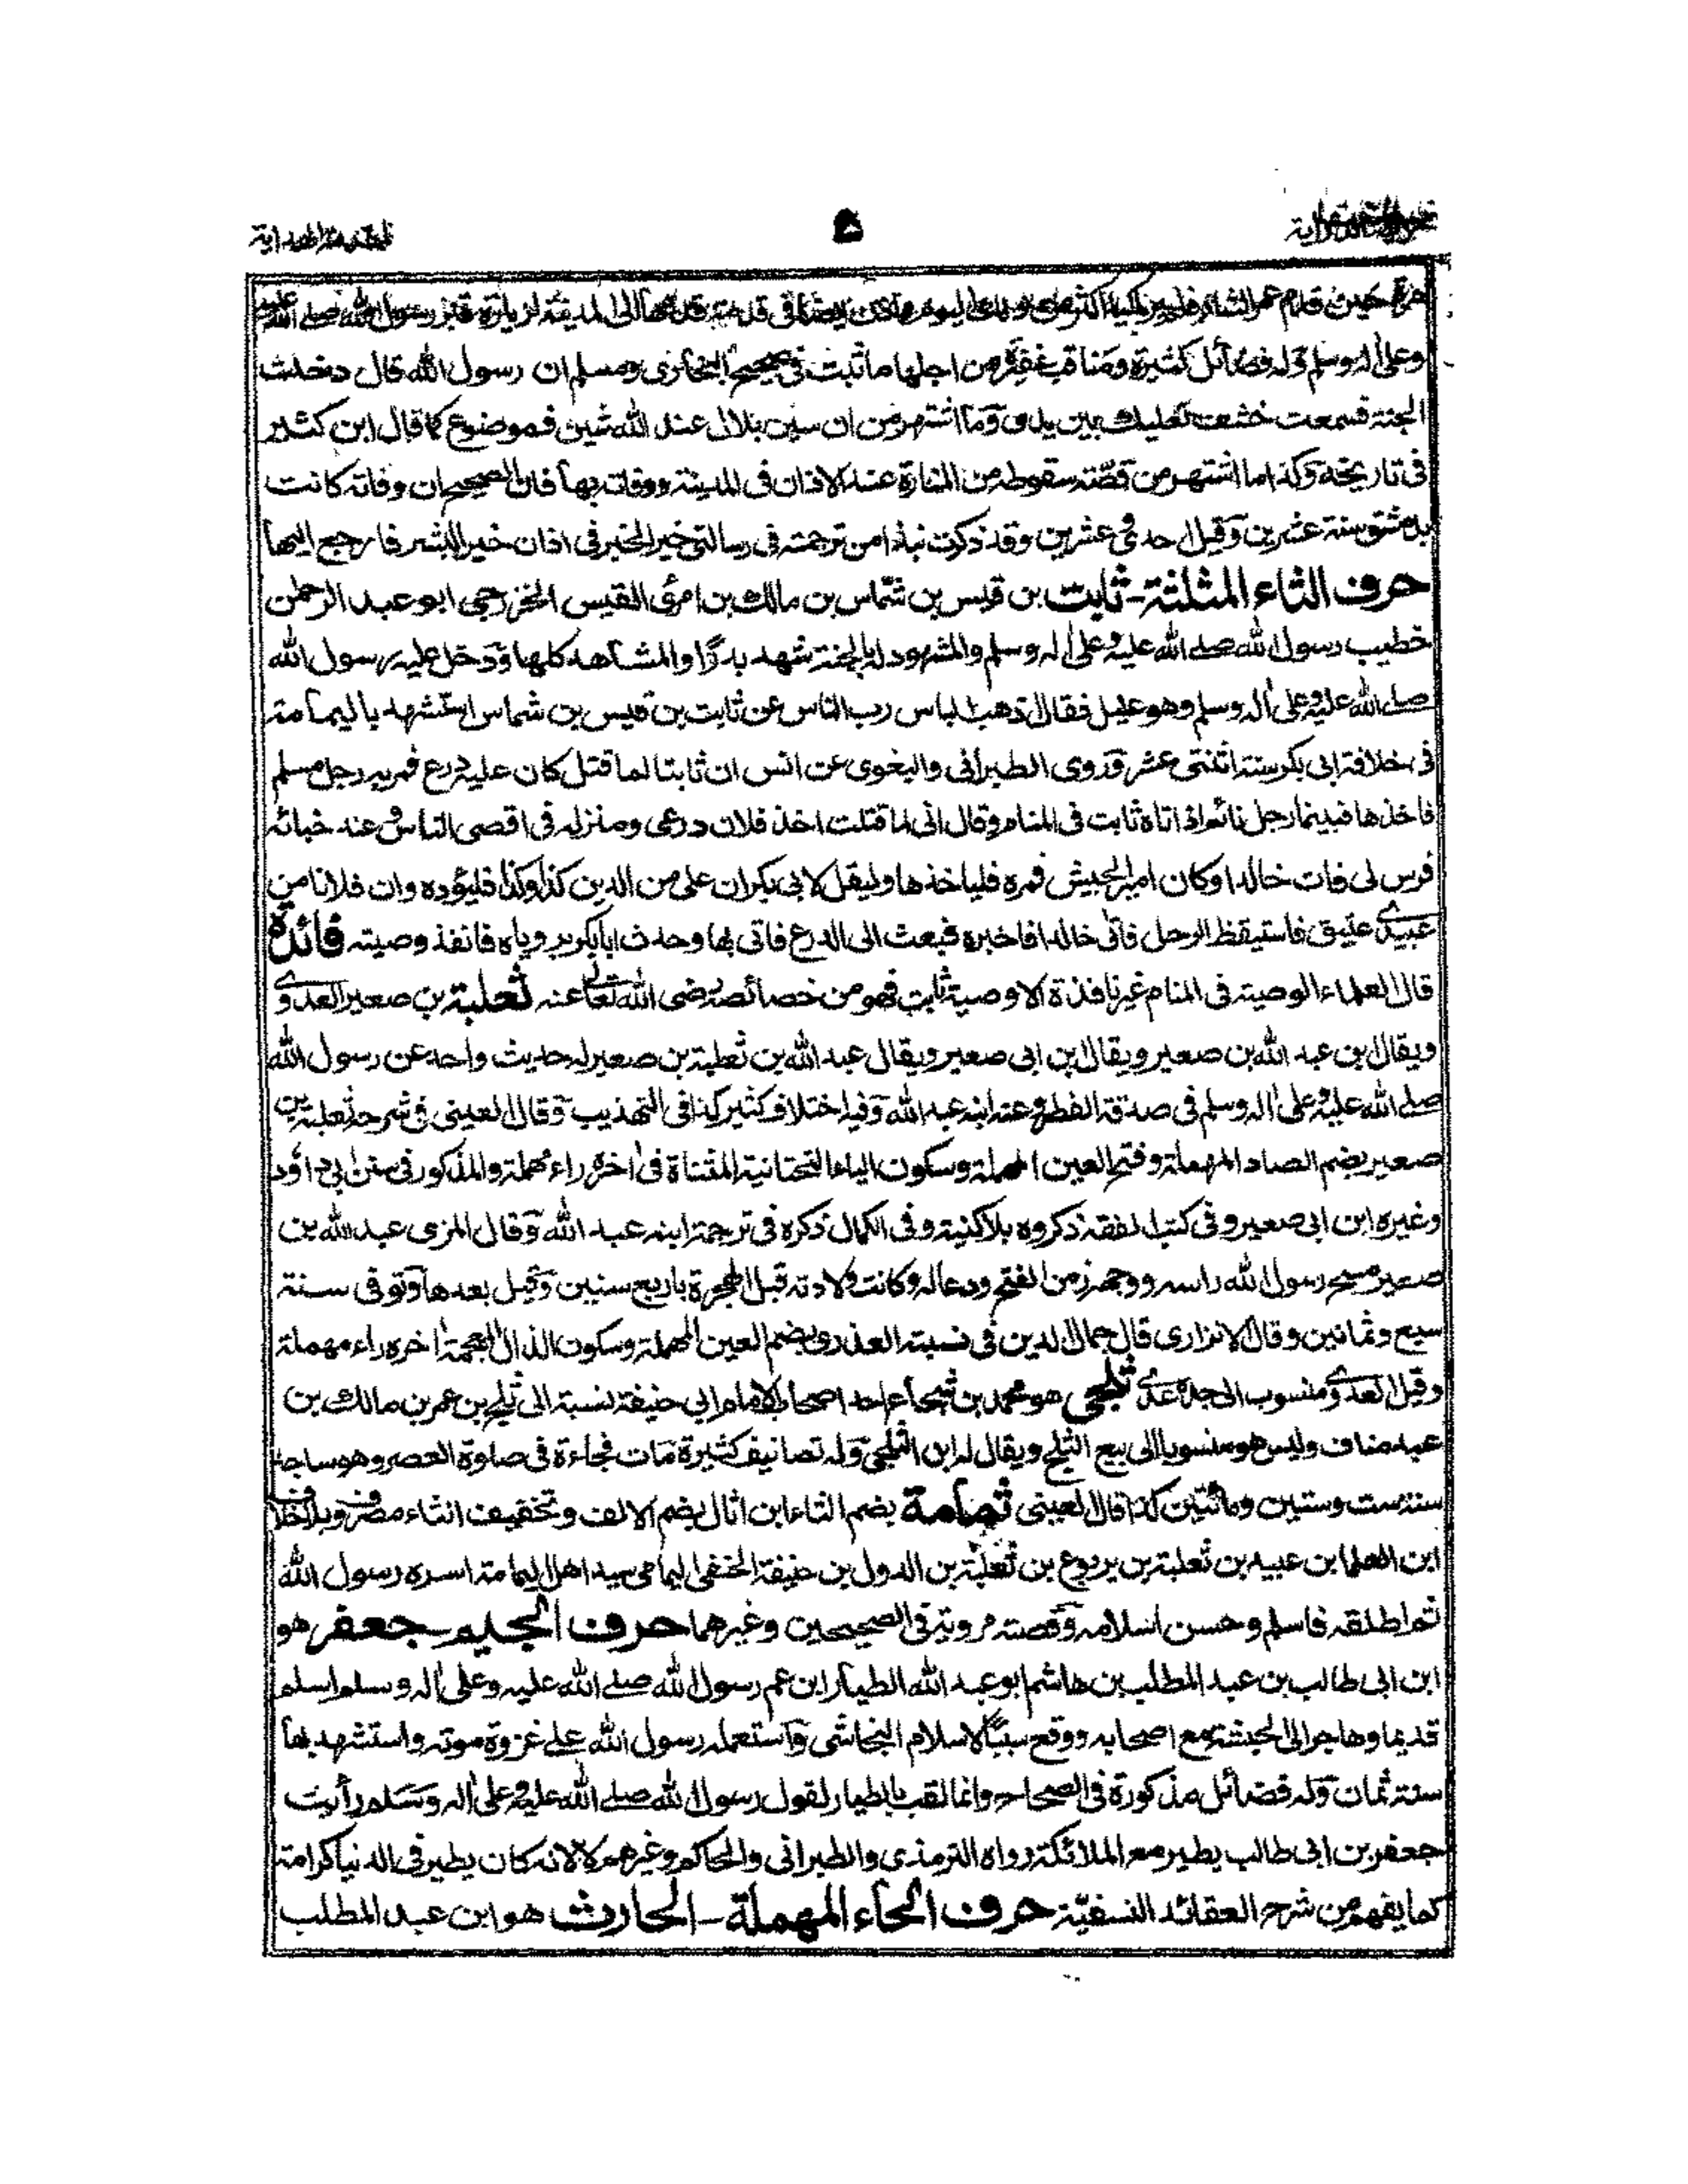 ٥
مرة حين قدم عمر الشام فلم ير باكيا اكثر من ذلك اليوم واذن ايضا فى قدمة قدمها الى المدينة لزيارة قبر رسول الله صلى الله عليه
وعلى اله وسلم وله فضائل كثيرة ومناقب غفيرة من اجلها ما ثبت فى صحيح البخارى ومسلم ان رسول الله قال دخلت
الجنة فسمعت خشف نعليك بين يدى وما اشتهر من ان سين بلال عند الله شين فموضوع كما قال ابن كثير
فى تاريخه وكذا ما اشتهر من قصة سقوطه من المنارة عند الاذان فى المدينة ووفاته بها فان الصحيح ان وفاته كانت
بدمشق سنة عشرين وقيل احدى وعشرين وقد ذكرت نبذا من ترجمته فى رسالتى خير الخبر فى اذان خير البشر فارجع اليها
حرف الثاء المثلثة - ثابت بن قيس بن شماس بن مالك بن امرئ القيس الخزرجى ابو عبد الرحمن
خطيب رسول الله صلى الله عليه وعلى اله وسلم والمشهود له بالجنة شهد بدرا والمشاهد كلها ودخل عليه رسول الله
صلى الله عليه وعلى اله وسلم وهو عليل فقال اذهب الباس رب الناس عن ثابت بن قيس بن شماس استشهد باليمامة
فى خلافة ابى بكر سنة اثنتى عشر وروى الطبرانى والبغوى عن انس ان ثابتا لما قتل كان عليه درع فمر به رجل مسلم
فاخذها فبينما رجل نائم اذ اتاه ثابت فى المنام وقال انى لما قتلت اخذ فلان درعى ومنزله فى اقصى الناس وعند خبائه
فرس لى فات خالدا وكان امير الجيش فمره فلياخذها وليقل لابى بكر ان على من الدين كذا وكذا فليؤده وان فلانا من
عبيدى عتيق فاستيقظ الرجل فاتى خالدا فاخبره فبعث الى الدرع فاتى بها وحدث ابا بكر برؤياه فانفذ وصيته فائدة
قال العلماء الوصية فى المنام غير نافذة الا وصية ثابت فهو من خصائصه رضى الله تعالى عنه ثعلبة بن صعير العدوى
ويقال بن عبد الله بن صعير ويقال ابن ابى صعير ويقال عبد الله بن ثعلبة بن صعير له حديث واحد عن رسول الله
صلى الله عليه وعلى اله وسلم فى صدقة الفطر وعنه ابنه عبد الله وفيه اختلاف كثير كذا فى التهذيب وقال العينى فى شرحه ثعلبة بن
صعير بضم الصاد المهملة وفتح العين المهملة وسكون الياء التحتانية المثناة فى اخره راء مهملة والمذكور فى سنن ابى داؤد
وغيره ابن ابى صعير وفى كتب الفقه ذكروه بلا كنية وفى الكمال ذكره فى ترجمة ابنه عبد الله وقال المزى عبد الله بن
صعير مسح رسول الله راسه ووجهه زمن الفتح ودعا له وكانت ولادته قبل الهجرة باربع سنين وقيل بعدها وتوفى سنة
سبع وثمانين وقال الاتزارى قال جمال الدين فى نسبته العذرى بضم العين المهملة وسكون الذال المعجمة اخره راء مهملة
وقيل العدوى منسوب الى جده عدى ثلجى هو محمد بن شجاع احد اصحاب الامام ابى حنيفة نسبة الى ثلج بن عمر بن مالك بن
عبد مناف وليس هو منسوبا الى بيع الثلج ويقال له ابن الثلجى وله تصانيف كثيرة مات فجاءة فى صلوة العصر وهو ساجد
سنة ست وستين ومائتين كذا قال العينى ثمامة بضم الثاء ابن اثال بضم الالف وتخفيف الثاء مصروف بلا خلاف
ابن النعمان بن عبيد بن ثعلبة بن يربوع بن ثعلبة بن الدول بن حنيفة الحنفى اليمامى سيد اهل اليمامة اسره رسول الله
ثم اطلقه فاسلم وحسن اسلامه وقصته مروية فى الصحيحين وغيرهما حرف الجيم - جعفر هو
ابن ابى طالب بن عبد المطلب بن هاشم ابو عبد الله الطيار ابن عم رسول الله صلى الله عليه وعلى اله وسلم اسلم
قديما وهاجر الى الحبشة مع اصحابه ووقع سببا لاسلام النجاشى واستعمله رسول الله على غزوة موته واستشهد بها
سنة ثمان وله فضائل مذكورة فى الصحاح وانما لقب بالطيار لقول رسول الله صلى الله عليه وعلى اله وسلم رأيت
جعفر بن ابى طالب يطير مع الملائكة رواه الترمذى والطبرانى والحاكم وغيرهم لا لانه كان يطير فى الدنيا كرامة
كما يفهم من شرح العقائد النسفية حرف الحاء المهملة - الحارث هو ابن عبد المطلب